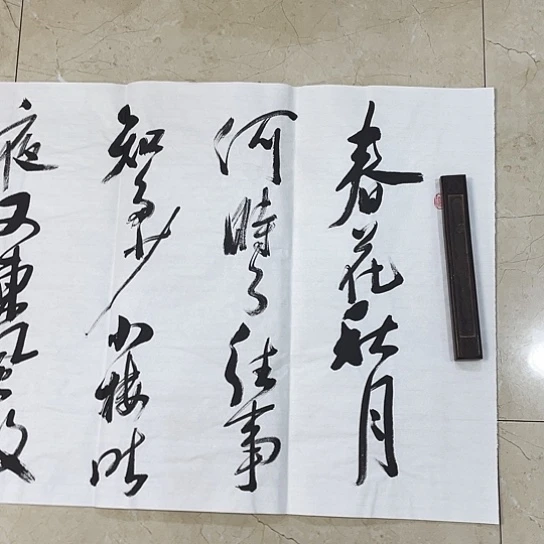 春花秋月
何時了往事
知多少小楼昨
夜又東風故